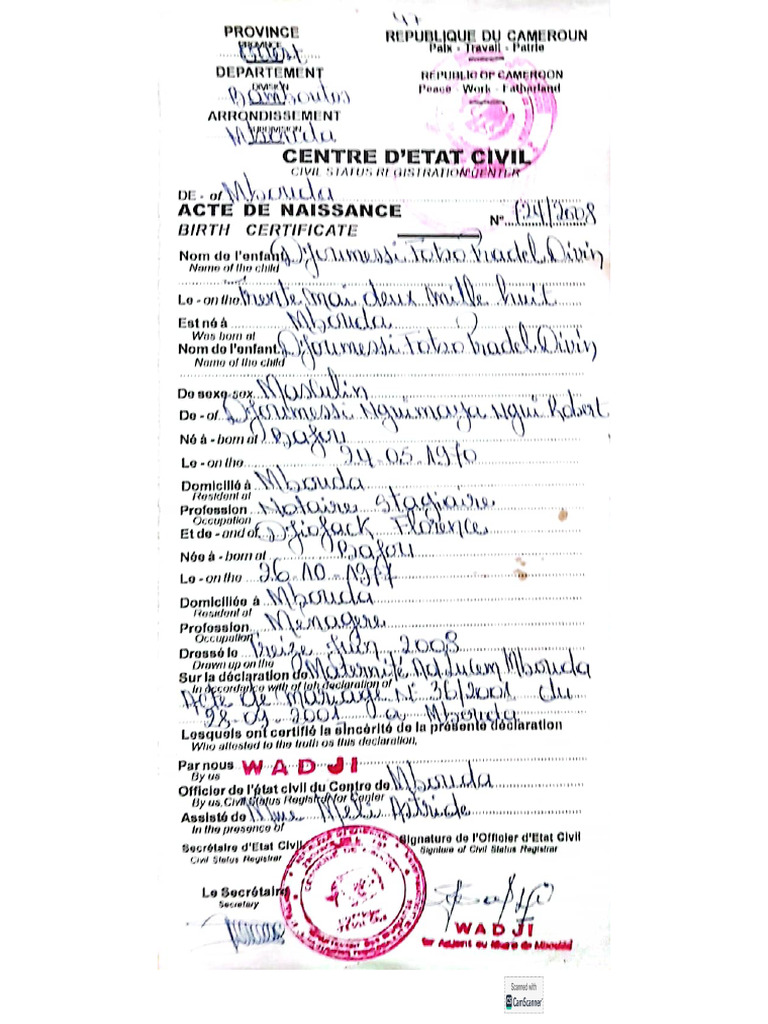 47
PROVINCE
PROVINCE
Ouest
DEPARTEMENT
DIVISION
Bamboutos
ARRONDISSEMENT
SUBDIVISION
Mbouda
REPUBLIQUE DU CAMEROUN
Paix - Travail - Patrie
REPUBLIC OF CAMEROON
Peace - Work - Fatherland
CENTRE D'ETAT CIVIL
CIVIL STATUS REGISTRATION CENTER
DE - of Mbouda
ACTE DE NAISSANCE N° 124/2008
BIRTH CERTIFICATE
Nom de l'enfant Djoumessi Fotso Pradel Divin
Name of the child
Le - on the trente mai deux mille huit
Est né à Mbouda
Was born at
Nom de l'enfant Djoumessi Fotso Pradel Divin
Name of the child
De sexe-sex Masculin
De - of Djoumessi Nguimaya Ngui Robert
Né à - born at Bafou
Le - on the 24.05.1970
Domicilié à Mbouda
Resident at
Profession Notaire Stagiaire
Occupation
Et de - and of Djiojack Florence
Née à - born at Bafou
Le - on the 26.10.1977
Domiciliée à Mbouda
Resident at
Profession Menagere
Occupation
Dressé le Treize Juin 2008
Drawn up on the
Sur la déclaration de Maternité Ad Lucem Mbouda
In accordance with of teh declaration of
Acte de mariage N° 36/2001 du
28.09.2001 a Mbouda
Lesquels ont certifié la sincérité de la présente déclaration
Who attested to the truth as this declaration,
Par nous WADJI
By us
Officier de l'état civil du Centre de Mbouda
By us, Civil Status Registrar for Center
Assisté de Mme Meli Astride
In the presence of
Secrétaire d'Etat Civil
Civil Status Registrar
Signature de l'Officier d'Etat Civil
Signature of Civil Status Registrar
Le Secrétaire
Secretary
WADJI
1er Adjoint au Maire de Mbouda
Scanned with
CS CamScanner